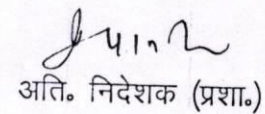 अति॰ निदेशक (प्रशा॰)